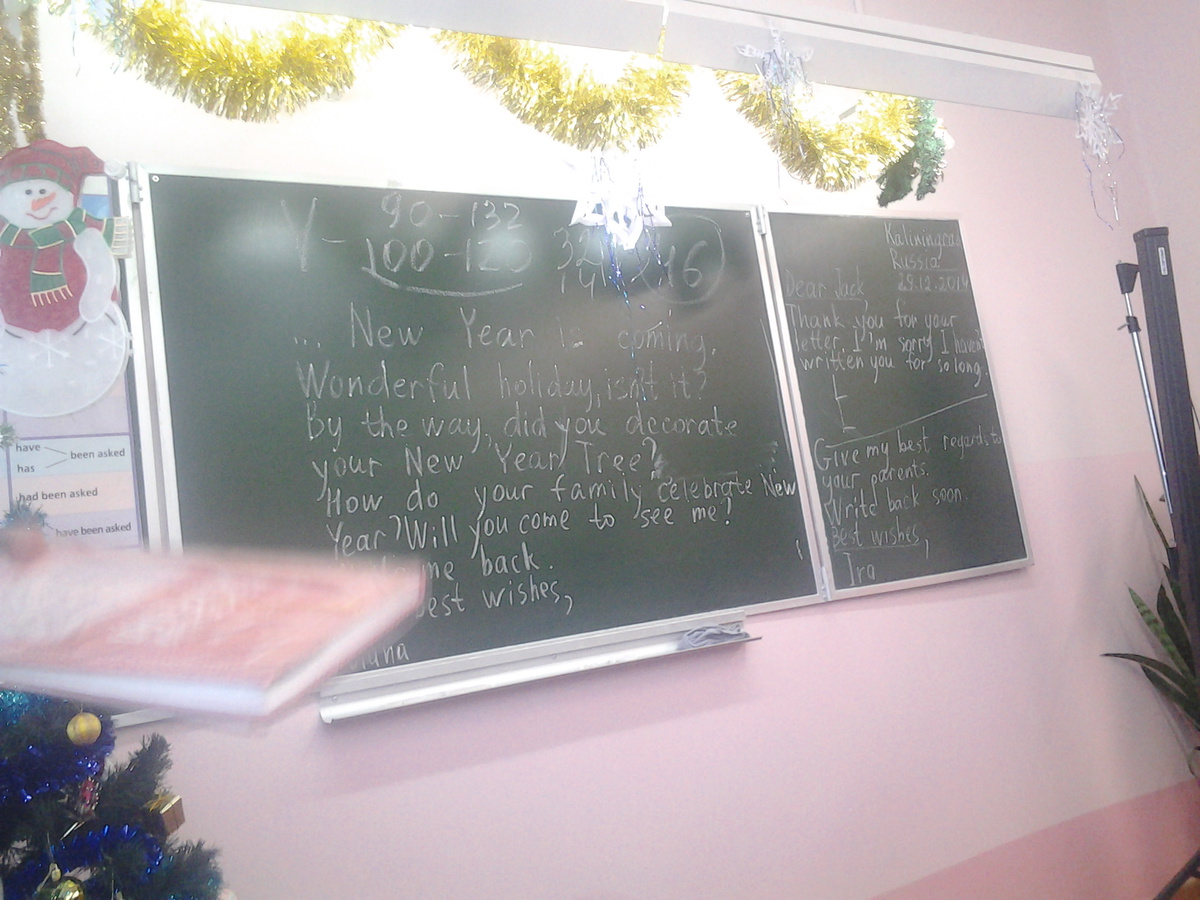 V – 90 – 132
100 – 120
... New Year is coming.
Wonderful holiday, isn't it?
By the way, did you decorate
your New Year Tree?
How do your family celebrate New
Year? Will you come to see me?
me back.
est wishes,
Kaliningrad
Russia
29.12.201
Dear Jack,
Thank you for your
letter. I'm sorry I haven't
written you for so long.
Give my best regards to
your parents.
Write back soon.
Best wishes,
Ira
have
has
been asked
had been asked
have been asked